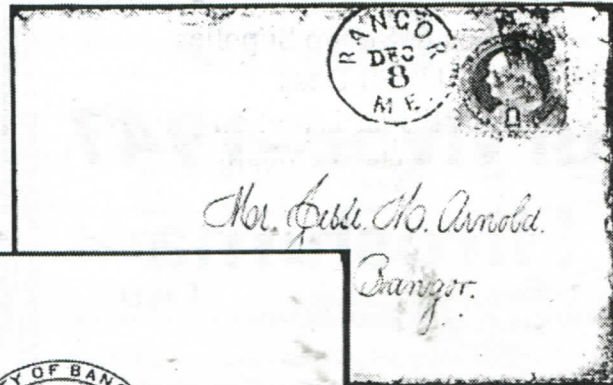 BANGOR
DEC
8
ME.
Mr. Jesse M. Arnold.
Bangor.
Y OF BAN